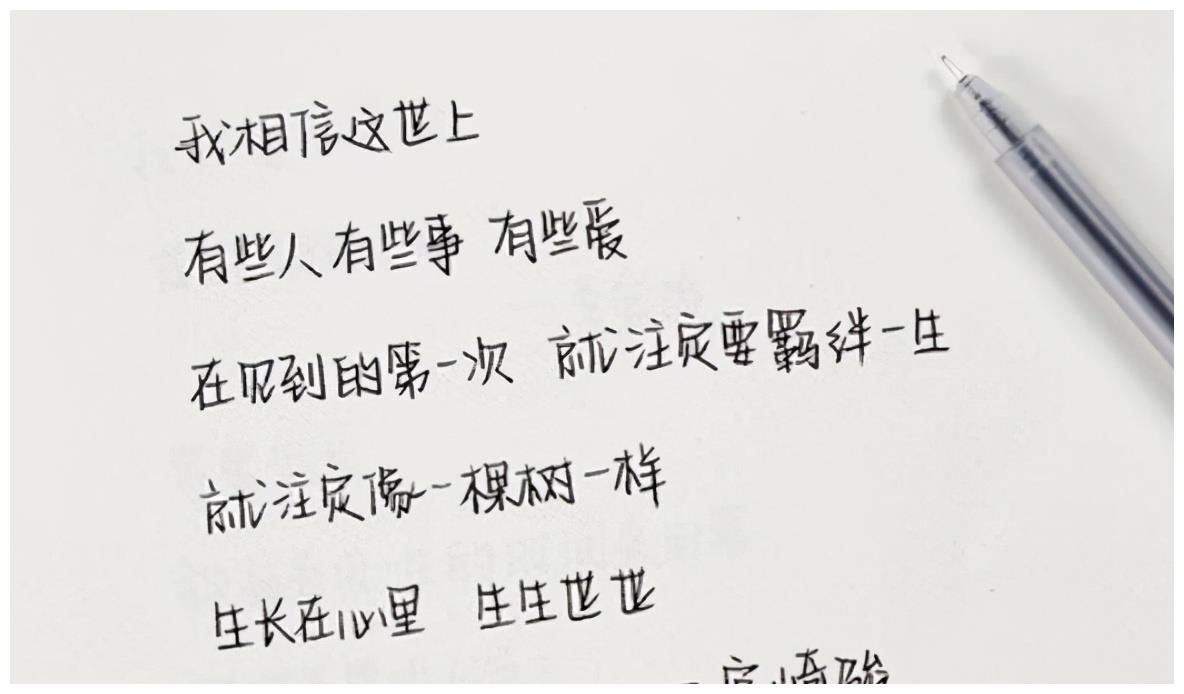 我相信这世上
有些人有些事 有些爱
在见到的第一次 就注定要羁绊一生
就注定像一棵树一样
生长在心里 生生世世
—宫崎骏